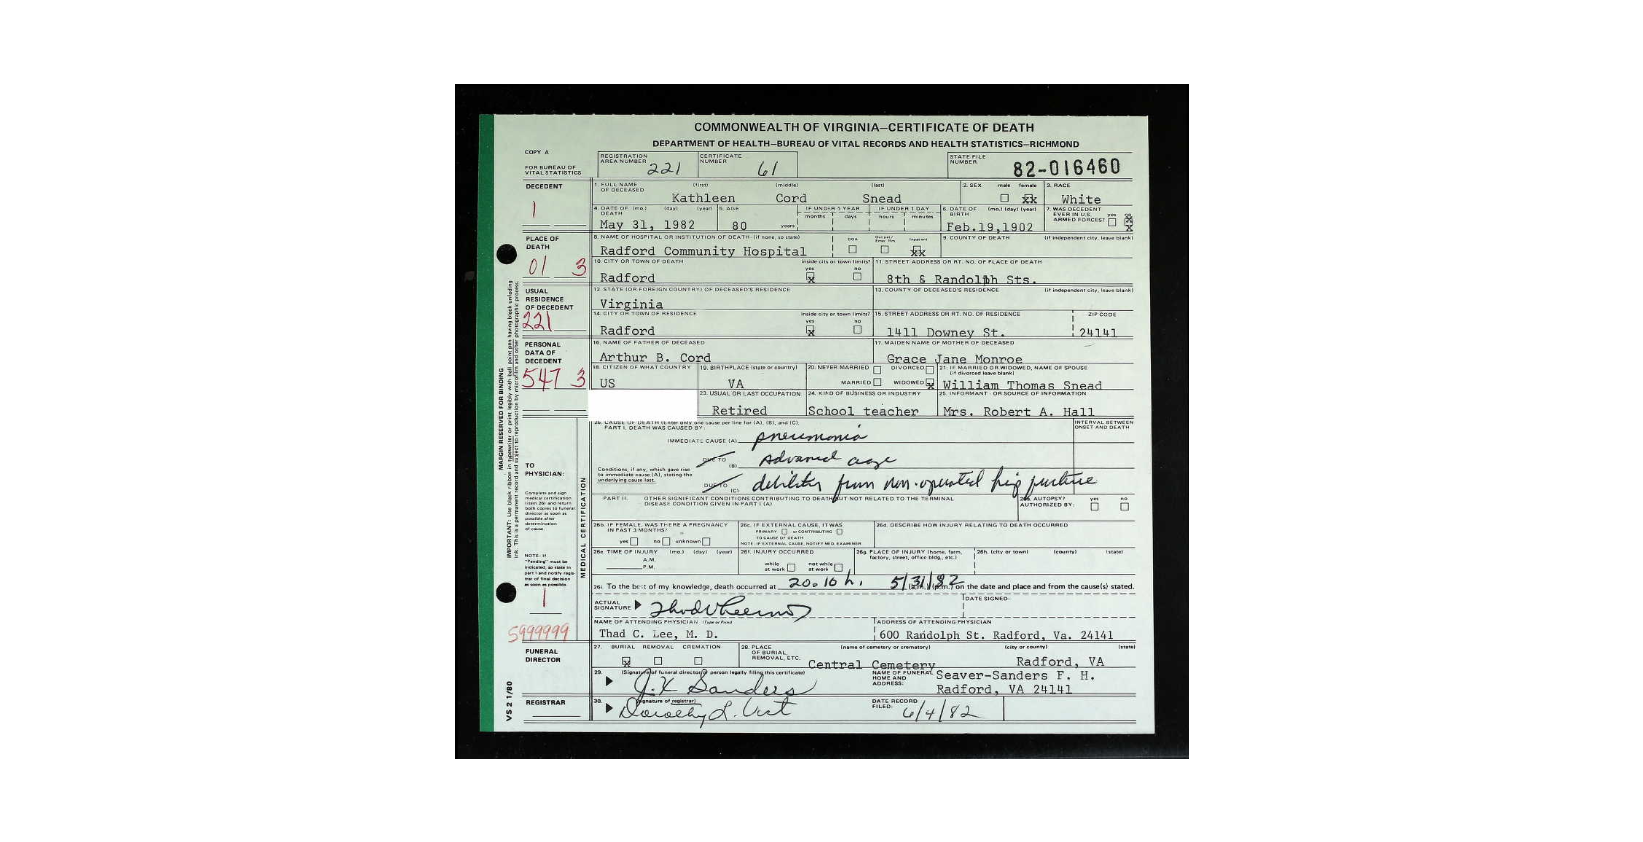 COMMONWEALTH OF VIRGINIA—CERTIFICATE OF DEATH
DEPARTMENT OF HEALTH—BUREAU OF VITAL RECORDS AND HEALTH STATISTICS—RICHMOND
COPY A
FOR BUREAU OF VITAL STATISTICS
REGISTRATION AREA NUMBER 221 CERTIFICATE NUMBER 61 STATE FILE NUMBER 82-016460
DECEDENT
1
1. FULL NAME OF DECEASED (first) (middle) (last) 2. SEX male female 3. RACE
Kathleen Cord Snead xx White
4. DATE OF DEATH (mo.) (day) (year) 5. AGE IF UNDER 1 YEAR IF UNDER 1 DAY 6. DATE OF BIRTH (mo.) (day) (year) 7. WAS DECEDENT EVER IN U.S. ARMED FORCES? yes
months days hours minutes
May 31, 1982 80 years Feb.19,1902
PLACE OF DEATH
01 3
8. NAME OF HOSPITAL OR INSTITUTION OF DEATH (if none, so state) DOA Inpatient 9. COUNTY OF DEATH (if independent city, leave blank)
Radford Community Hospital xx
10. CITY OR TOWN OF DEATH inside city or town limits? yes no 11. STREET ADDRESS OR RT. NO. OF PLACE OF DEATH
Radford x 8th & Randolph Sts.
USUAL RESIDENCE OF DECEDENT
221
12. STATE (OR FOREIGN COUNTRY) OF DECEASED'S RESIDENCE 13. COUNTY OF DECEASED'S RESIDENCE (if independent city, leave blank)
Virginia
14. CITY OR TOWN OF RESIDENCE inside city or town limits? yes no 15. STREET ADDRESS OR RT. NO. OF RESIDENCE ZIP CODE
Radford x 1411 Downey St. 24141
PERSONAL DATA OF DECEDENT
547 3
16. NAME OF FATHER OF DECEASED 17. MAIDEN NAME OF MOTHER OF DECEASED
Arthur B. Cord Grace Jane Monroe
18. CITIZEN OF WHAT COUNTRY 19. BIRTHPLACE (state or country) 20. NEVER MARRIED DIVORCED 21. IF MARRIED OR WIDOWED, NAME OF SPOUSE (if divorced leave blank)
MARRIED WIDOWED
US VA x William Thomas Snead
23. USUAL OR LAST OCCUPATION 24. KIND OF BUSINESS OR INDUSTRY 25. INFORMANT - OR SOURCE OF INFORMATION
Retired School teacher Mrs. Robert A. Hall
26. CAUSE OF DEATH (enter only one cause per line for (A), (B), and (C).) INTERVAL BETWEEN ONSET AND DEATH
PART I. DEATH WAS CAUSED BY:
IMMEDIATE CAUSE (A) pneumonia
DUE TO (B) Advanced age
Conditions, if any, which gave rise to immediate cause (A), stating the underlying cause last.
DUE TO (C) debility from non-operated hip fracture
TO PHYSICIAN:
Complete and sign medical certification (item 26) and return both copies to funeral director as soon as possible after determination of cause
NOTE: If "Pending" must be indicated, so state in part I and notify registrar of final decision as soon as possible
MEDICAL CERTIFICATION
PART II. OTHER SIGNIFICANT CONDITIONS CONTRIBUTING TO DEATH BUT NOT RELATED TO THE TERMINAL DISEASE CONDITION GIVEN IN PART I (A) 26a. AUTOPSY? AUTHORIZED BY: yes no
26b. IF FEMALE, WAS THERE A PREGNANCY IN PAST 3 MONTHS? 26c. IF EXTERNAL CAUSE, IT WAS 26d. DESCRIBE HOW INJURY RELATING TO DEATH OCCURRED
yes no unknown PRIMARY or CONTRIBUTING TO CAUSE OF DEATH
NOTE: IF EXTERNAL CAUSE, NOTIFY MED. EXAMINER
26e. TIME OF INJURY (mo.) (day) (year) 26f. INJURY OCCURRED 26g. PLACE OF INJURY (home, farm, factory, street, office bldg., etc.) 26h. (city or town) (county) (state)
A.M.
P.M. while at work not while at work
26i. To the best of my knowledge, death occurred at 20:10 h. 5/31/82 (a.m.) (p.m.) on the date and place and from the cause(s) stated.
1
ACTUAL SIGNATURE DATE SIGNED:
5999999
NAME OF ATTENDING PHYSICIAN (Type or Print) ADDRESS OF ATTENDING PHYSICIAN
Thad C. Lee, M. D. 600 Randolph St. Radford, Va. 24141
FUNERAL DIRECTOR
27. BURIAL REMOVAL CREMATION 28. PLACE OF BURIAL, REMOVAL, ETC. (name of cemetery or crematory) (city or county) (state)
x Central Cemetery Radford, VA
29. (Signature of funeral director or person legally filing this certificate) NAME OF FUNERAL HOME AND ADDRESS: Seaver-Sanders F. H.
J.K Sanders Radford, VA 24141
REGISTRAR
30. (signature of registrar) DATE RECORD FILED:
Dorothy L. Vest 6/4/82
MARGIN RESERVED FOR BINDING
IMPORTANT: Use black ribbon in typewriter or print legibly with ball point pen having black unfading ink. This is a permanent record and subject to reproduction by microfilm and other photographic process.
VS 2 1/80